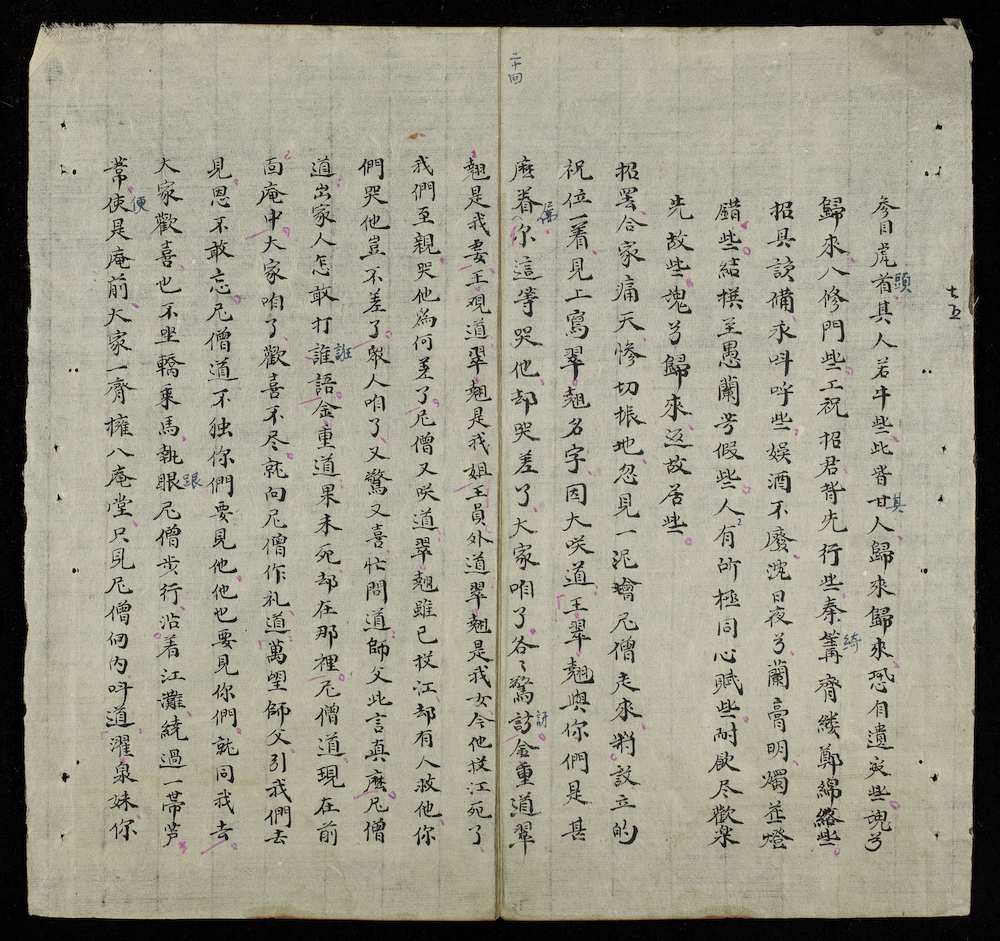 十五
參目虎首其人若牛些此皆甘人歸來歸來恐自遺灾些魂兮
頭
其
歸來入修門些工祝招君背先行些秦篝齊縷鄭綿絡些
綺
招具該備永呌呼些娛酒不廢沈日夜兮蘭膏明燭莁燈
錯些結撰至愚蘭芳假些人有所極同心賦些耐飲尽歡樂
先故些魂兮歸來返故居些
招罢合家痛天慘切振地忽見一泥壇尼僧走來將設立的
祝位一看見上寫翠翹名字因大咲道王翠翹與你們是甚
二十回
麽眷你這等哭他却哭差了大家咱了各々驚訝金重道翠
屬
訝
翹是我妻王观道翠翹是我姐王員外道翠翹是我女今他投江死了
我們至親哭他為何差了尼僧又咲道翠翹雖已投江却有人救他你
們哭他豈不差了眾人咱了又驚又喜忙問道師父此言真麽尼僧
道出家人怎敢打誰語金重道果未死却在那裡尼僧道現在前
誑
面庵中大家咱了歡喜不尽就向尼僧作礼道萬望師父引我們去
見恩不敢忘尼僧道不独你們要見他他也要見你們就同我去
大家歡喜也不坐轎乘馬執眼尼僧步行沿着江灘繞過一帶芦
跟
葦使是庵前大家一齊擁入庵堂只見尼僧向内呌道濯泉妹你
便